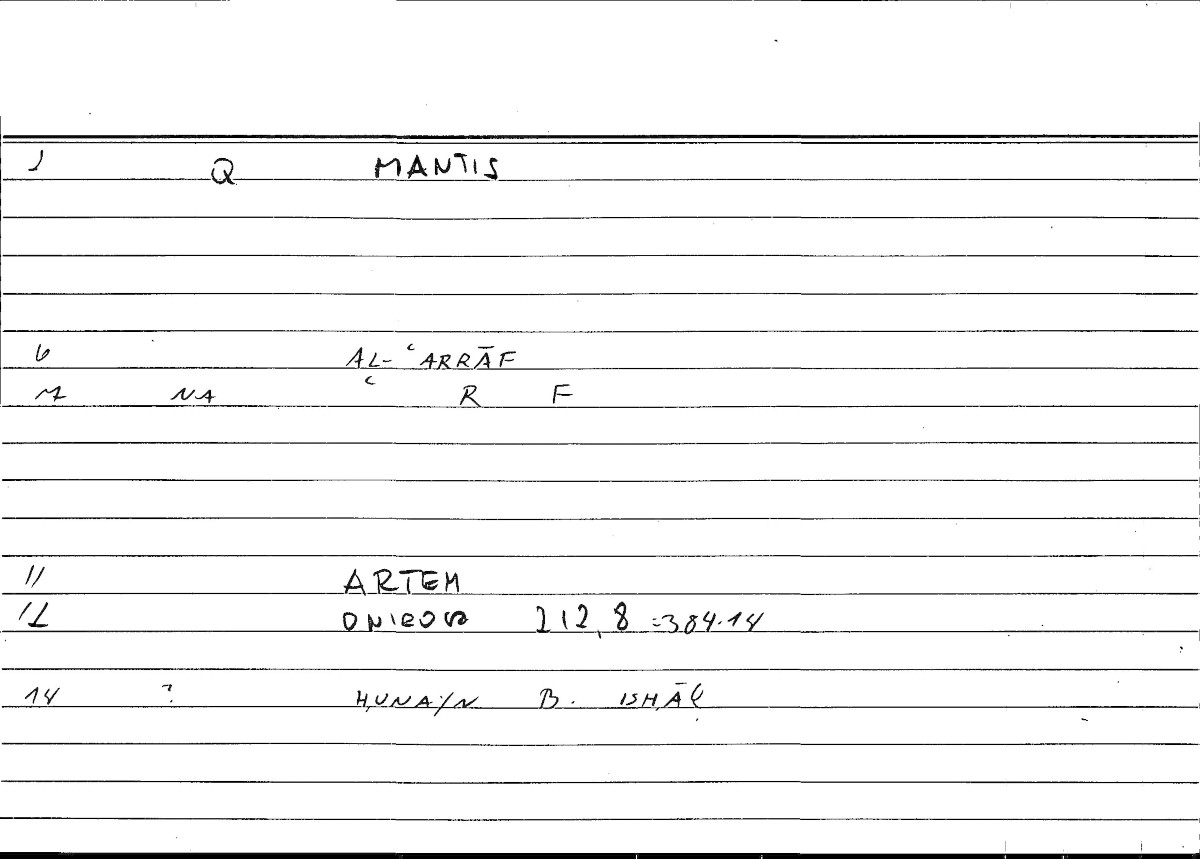 1 Q MANTIS
6 AL- ʿARRĀF
7 NA ʿ R F
11 ARTEM
12 ONIROCR 212,8 =384.14
14 ? ḤUNAYN B. ISḤĀQ